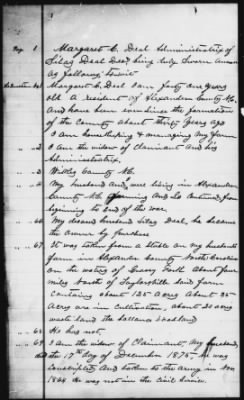 Dep. 1 Margaret C. Deal Administratrix of
Silas Deal Decd being duly Sworn answers
as following to wit
Margaret C. Deal I am forty one years
old a resident of Alexander County NC.
and have been ever since the formation
of the County about thirty years ago
I am housekeeping & managing my farm
" 2 I am the widow of Claimant and his
Administratrix.
" 3 Wilkes County NC.
" 4 My husband and were living in Alexander
County NC farming and So Continued from
beginning to End of the war.
" 66 My deceased husband Silas Deal, he became
the owner by purchase
" 67 It was taken from a stable on my husbands
farm in Alexander County North Carolina
on the waters of Grassy Fork about four
miles North of Taylorsville said farm
containing about 125 acres about 35
acres are in cultivation, about 20 acres
waste land the balance woodland
" 68 He has not,
" 69 I am the widow of Claimant, my husband,
died the 17th day of December 1875. He was
conscripted and taken to the army in
1864 He was not in the Civil Service.